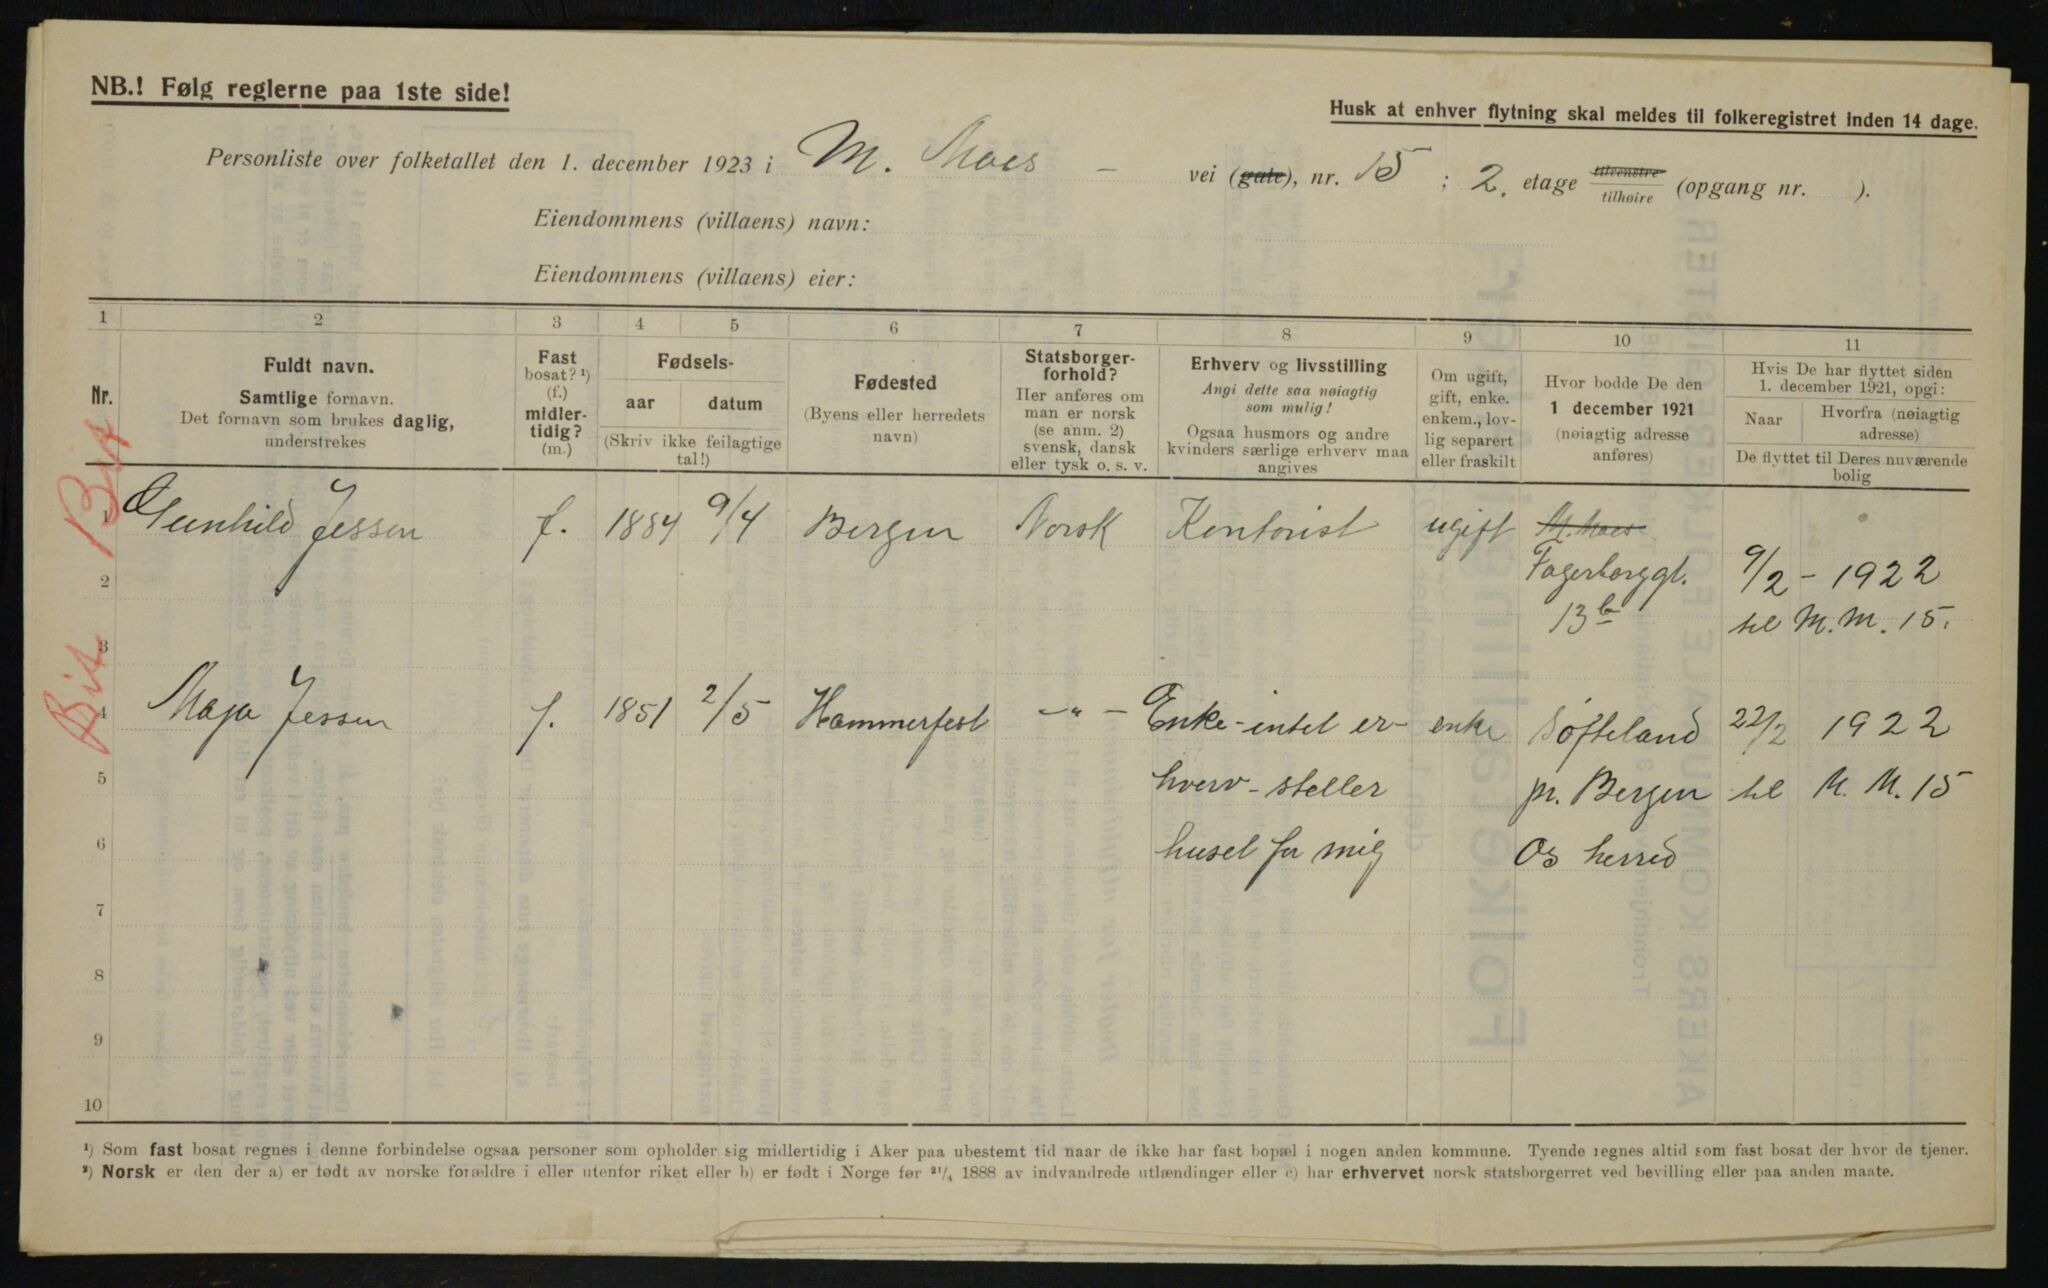 NB.! Følg reglerne paa 1ste side!
Husk at enhver flytning skal meldes til folkeregistret inden 14 dage.
Personliste over folketallet den 1. december 1923 i M. Moes – vei (gate), nr. 15 ; 2. etage tilvenstre tilhøire (opgang nr. ).
Eiendommens (villaens) navn:
Eiendommens (villaens) eier:
1 2 3 4 5 6 7 8 9 10 11
Nr.
Fuldt navn.
Samtlige fornavn.
Det fornavn som brukes daglig,
understrekes
Fast
bosat? ¹)
(f.)
midler-
tidig?
(m.)
Fødsels-
aar datum
(Skriv ikke feilagtige
tal!)
Fødested
(Byens eller herredets
navn)
Statsborger-
forhold?
Her anføres om
man er norsk
(se anm. 2)
svensk, dansk
eller tysk o. s. v.
Erhverv og livsstilling
Angi dette saa nøiagtig
som mulig!
Ogsaa husmors og andre
kvinders særlige erhverv maa
angives
Om ugift,
gift, enke.
enkem., lov-
lig separert
eller fraskilt
Hvor bodde De den
1 december 1921
(nøiagtig adresse
anføres)
Hvis De har flyttet siden
1. december 1921, opgi:
Naar Hvorfra (nøiagtig
adresse)
De flyttet til Deres nuværende
bolig
1 Gunhild Jessen f. 1884 9/4 Bergen Norsk Kontorist ugift M. Moes
2 Fagerborggt. 9/2 – 1922
13b til M.M. 15.
3
4 Maja Jessen f. 1851 2/5 Hammerfest –"– Enke – intet er- enke Søfteland 22/2 1922
5 hverv – steller pr. Bergen til M. M. 15
6 huset for mig Os herred
7
8
9
10
¹) Som fast bosat regnes i denne forbindelse ogsaa personer som opholder sig midlertidig i Aker paa ubestemt tid naar de ikke har fast bopæl i nogen anden kommune. Tyende regnes altid som fast bosat der hvor de tjener.
²) Norsk er den der a) er født av norske forældre i eller utenfor riket eller b) er født i Norge før 21/4 1888 av indvandrede utlændinger eller c) har erhvervet norsk statsborgerret ved bevilling eller paa anden maate.